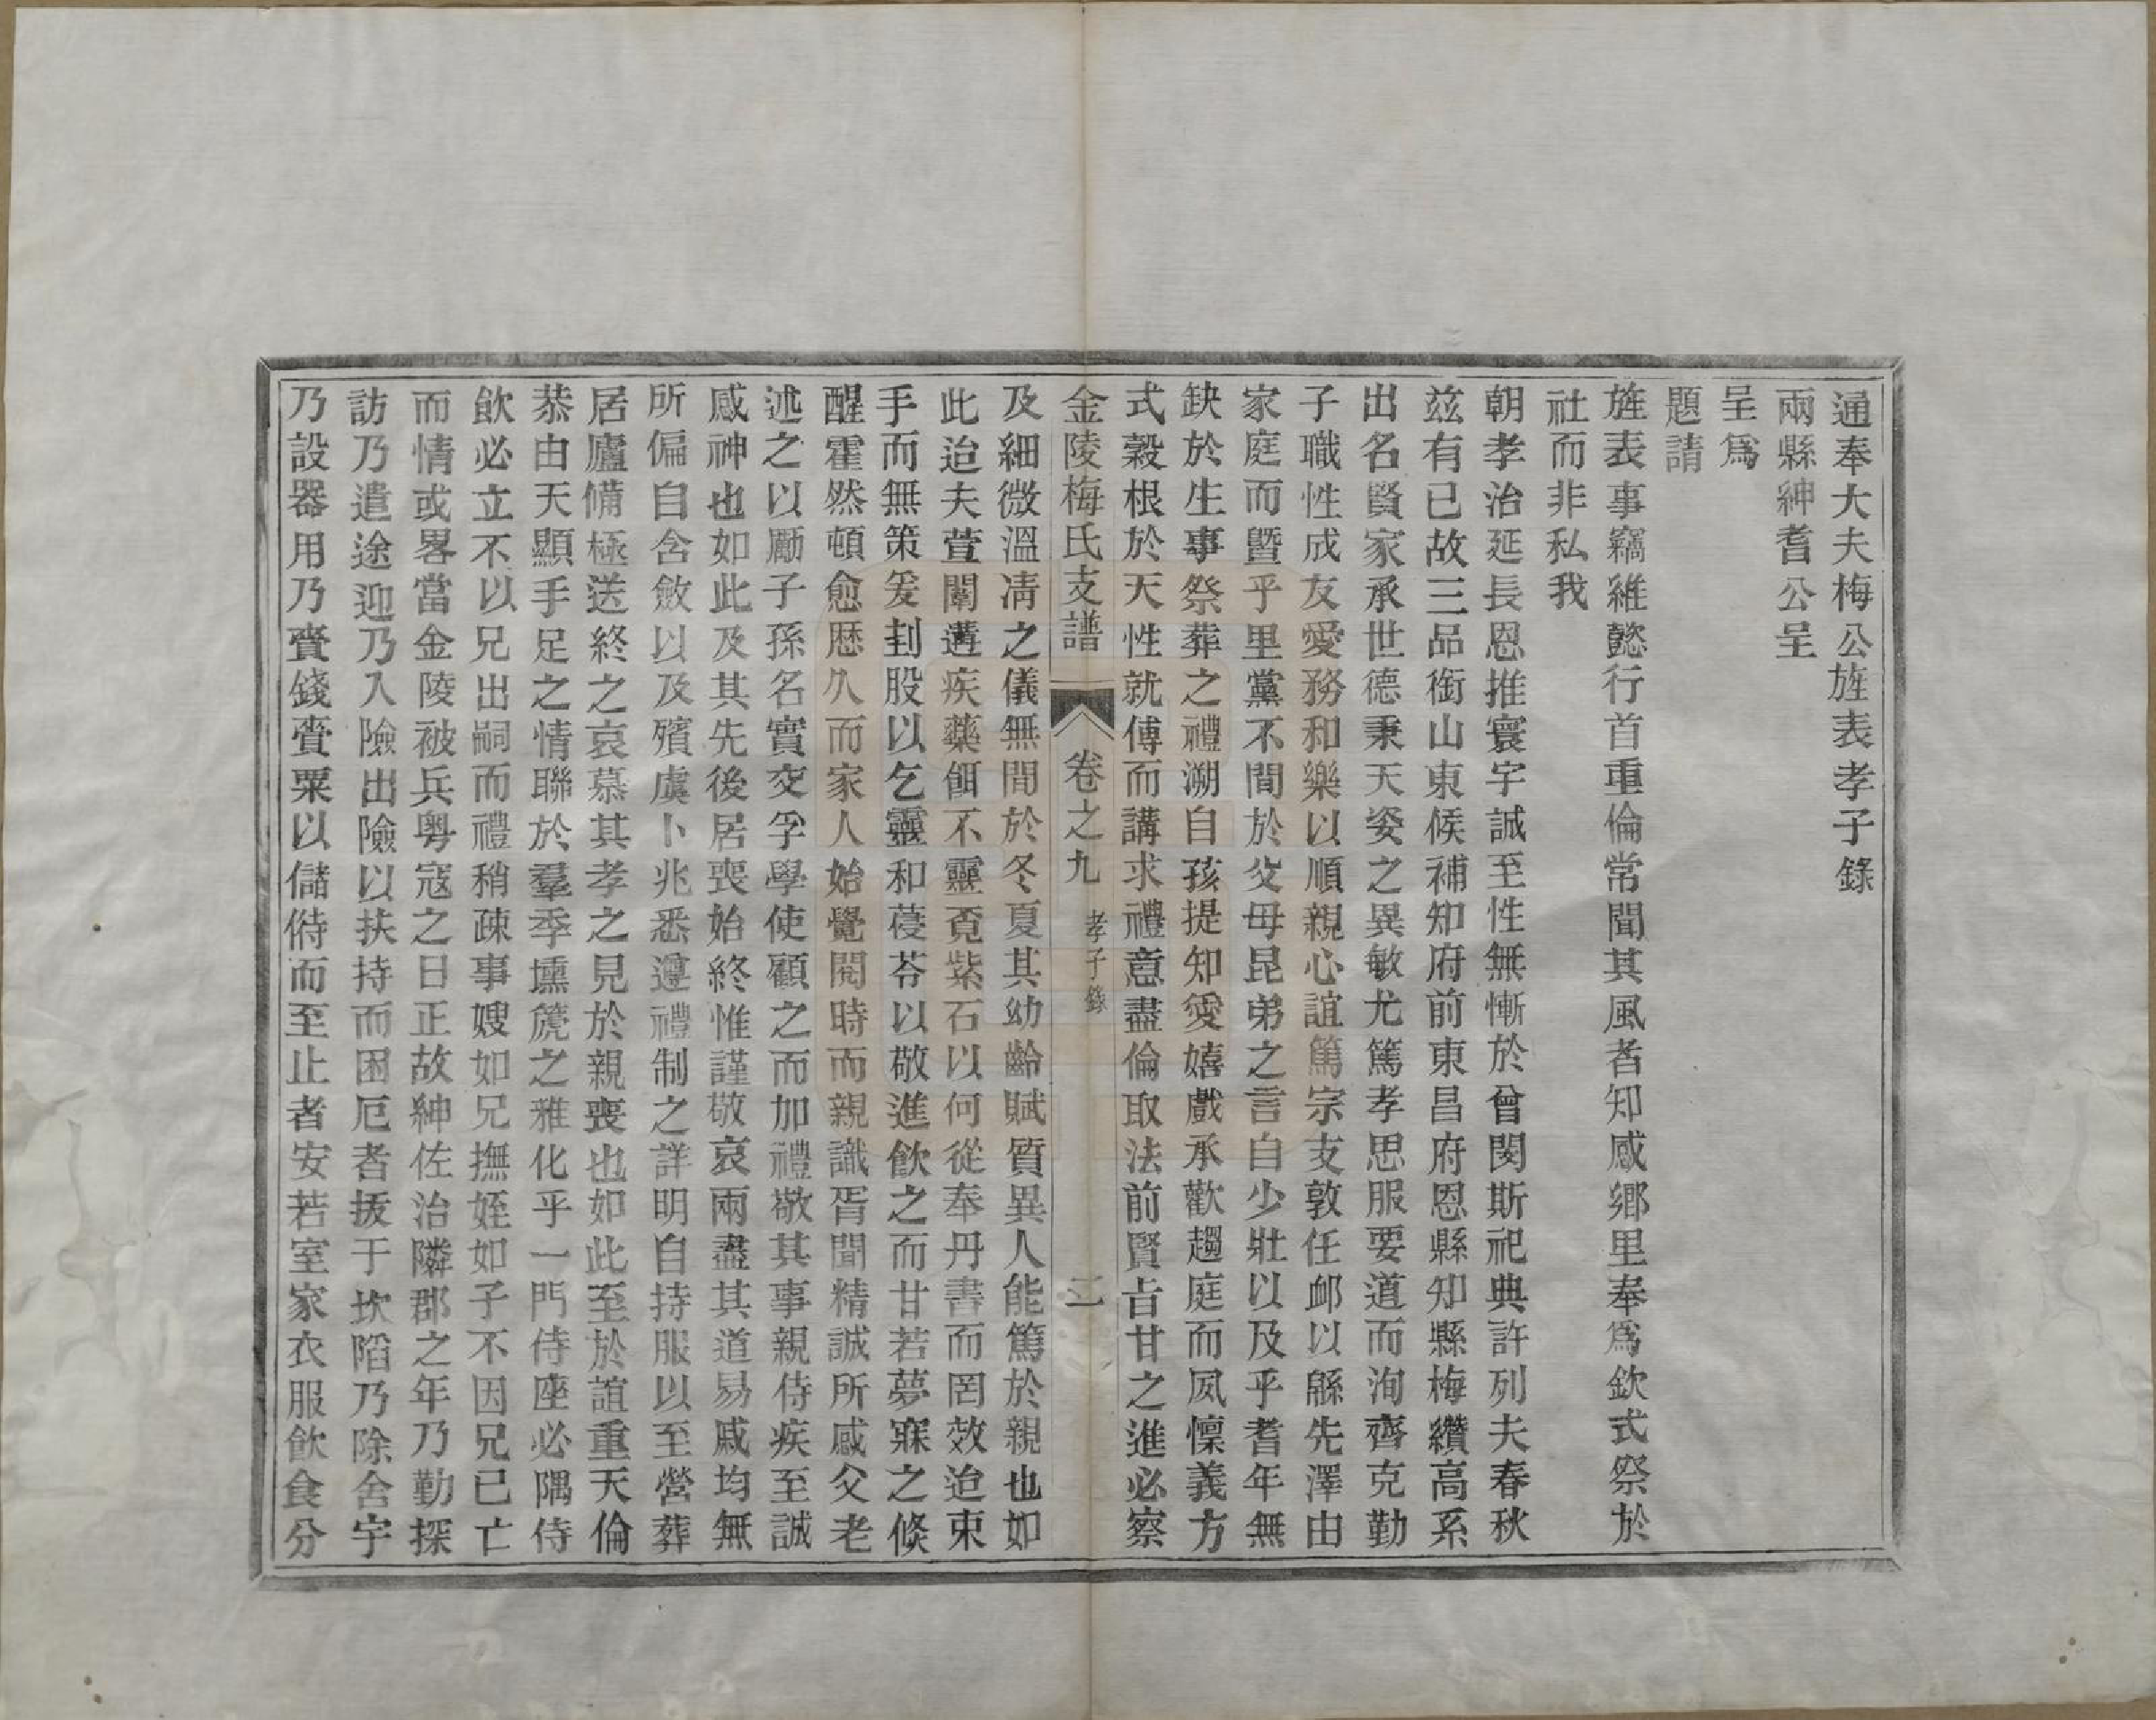 通奉大夫梅公旌表孝子錄
兩縣紳耆公呈
呈爲
題請
旌表事竊維懿行首重倫常聞其風者知感鄉里奉爲欽式祭於
社而非私我
朝孝治延長恩推寰宇誠至性無慚於曾閔斯祀典許列夫春秋
茲有已故三品銜山東候補知府前東昌府恩縣知縣梅纘高系
出名賢家承世德秉天姿之異敏尤篤孝思服要道而洵齊克勤
子職性成友愛務和樂以順親心誼篤宗支敦任卹以緜先澤由
家庭而曁乎里黨不間於父母昆弟之言自少壯以及乎耆年無
缺於生事祭葬之禮溯自孩提知愛嬉戲承歡趨庭而夙懍義方
式穀根於天性就傅而講求禮意盡倫取法前賢㫖甘之進必察
金陵梅氏支譜 卷之九 孝子錄 二
及細微溫凊之儀無間於冬夏其幼齡賦質異人能篤於親也如
此迨夫萱闈遘疾藥餌不靈覔紫石以何從奉丹書而罔效迨束
手而無策爰刲股以乞靈和葠苓以敬進飲之而甘若夢寐之倏
醒霍然頓愈歷久而家人始覺閱時而親識胥聞精誠所感父老
述之以勵子孫名實交孚學使顧之而加禮敬其事親侍疾至誠
感神也如此及其先後居喪始終惟謹敬哀兩盡其道易戚均無
所偏自含斂以及殯虞卜兆悉遵禮制之詳明自持服以至營葬
居廬備極送終之哀慕其孝之見於親喪也如此至於誼重天倫
恭由天顯手足之情聯於羣季壎篪之雅化乎一門侍座必隅侍
飲必立不以兄出嗣而禮稍疎事嫂如兄撫姪如子不因兄已亡
而情或畧當金陵被兵粤寇之日正故紳佐治隣郡之年乃勤探
訪乃遣途迎乃入險出險以扶持而困厄者拔于坎陷乃除舍宇
乃設器用乃賫錢賫粟以儲偫而至止者安若室家衣服飲食分